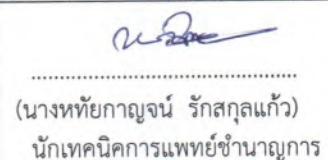 (นางหทัยกาญจน์ รักสกุลแก้ว)
นักเทคนิคการแพทย์ชำนาญการ